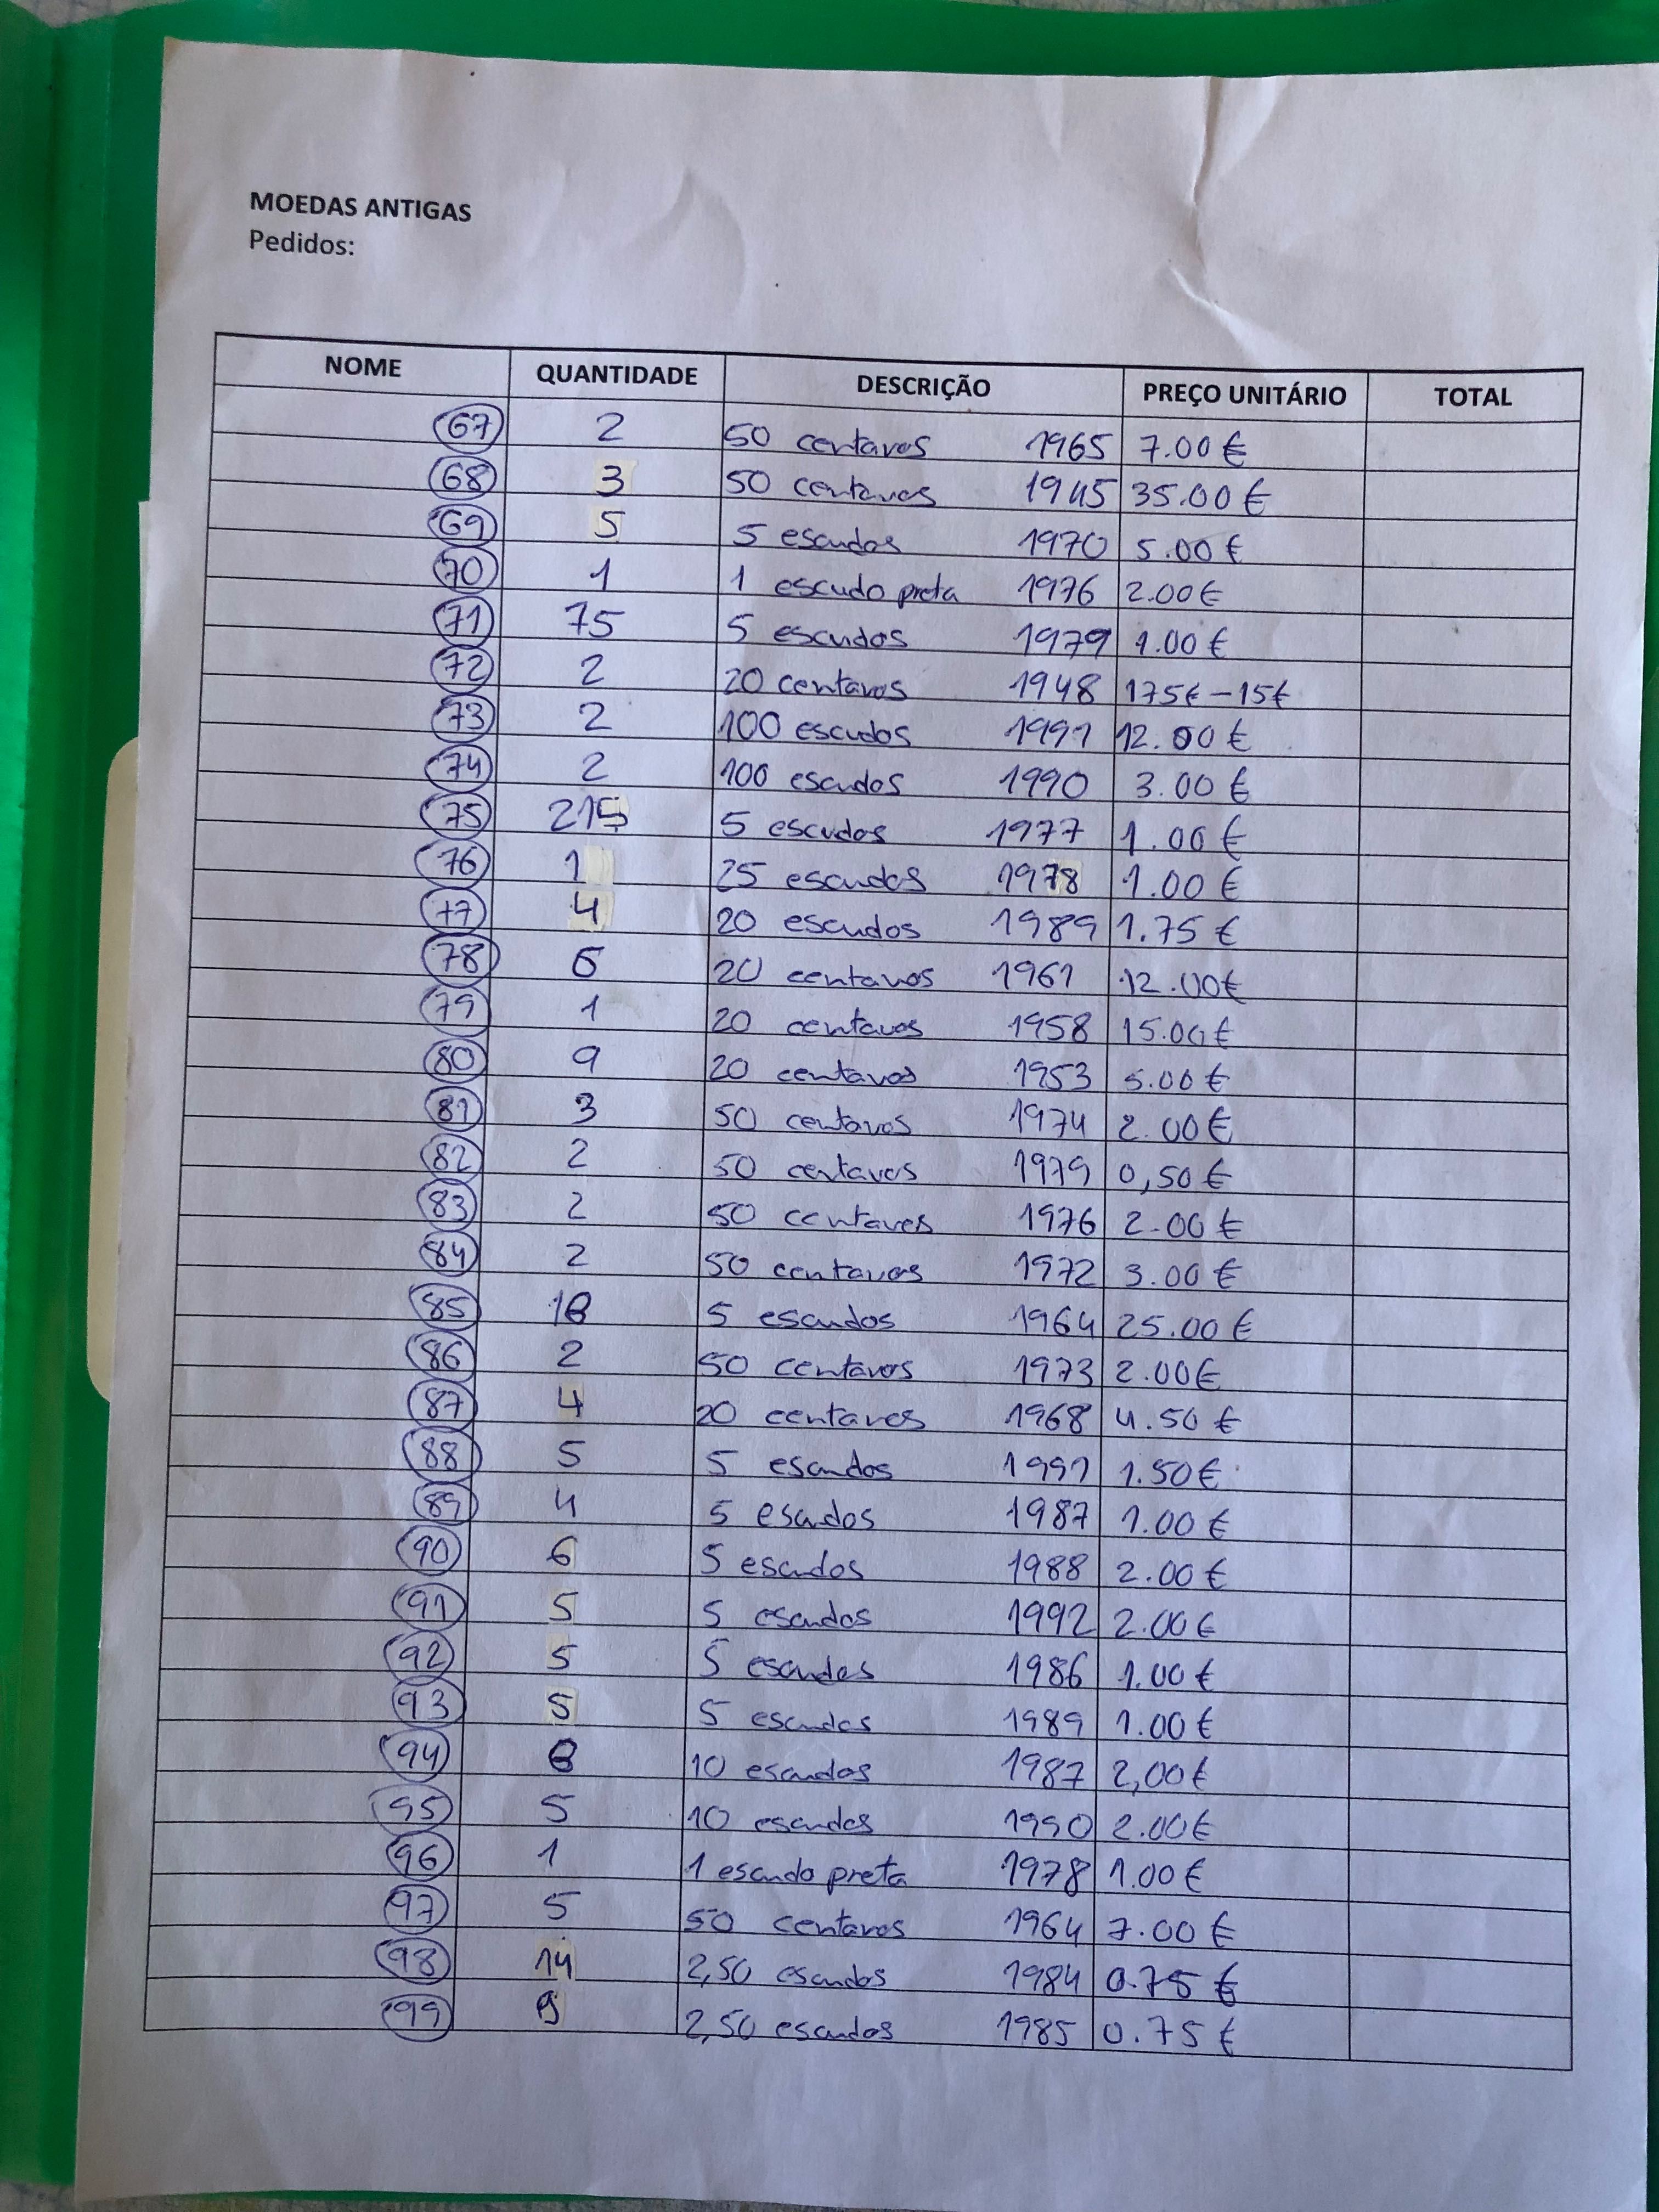 MOEDAS ANTIGAS
Pedidos:
NOME QUANTIDADE DESCRIÇÃO PREÇO UNITÁRIO TOTAL
67 2 50 centavos 1965 7.00€
68 3 50 centavos 1945 35.00€
69 5 5 escudos 1970 5.00€
70 1 1 escudo preta 1976 2.00€
71 75 5 escudos 1979 1.00€
72 2 20 centavos 1948 175€-15€
73 2 100 escudos 1991 12.00€
74 2 100 escudos 1990 3.00€
75 215 5 escudos 1977 1.00€
76 1 25 escudos 1978 1.00€
77 4 20 escudos 1989 1.75€
78 6 20 centavos 1961 12.00€
79 1 20 centavos 1958 15.00€
80 9 20 centavos 1953 5.00€
81 3 50 centavos 1974 2.00€
82 2 50 centavos 1979 0,50€
83 2 50 centavos 1976 2.00€
84 2 50 centavos 1972 3.00€
85 5 escudos 1964 25.00€
86 2 50 centavos 1973 2.00€
87 4 20 centavos 1968 4.50€
88 5 5 escudos 1991 1.50€
89 4 5 escudos 1987 1.00€
90 6 5 escudos 1988 2.00€
91 5 5 escudos 1992 2.00€
92 5 5 escudos 1986 1.00€
93 5 5 escudos 1989 1.00€
94 10 escudos 1987 2,00€
95 5 10 escudos 1990 2.00€
96 1 1 escudo preta 1978 1.00€
97 5 50 centavos 1964 7.00€
98 14 2,50 escudos 1984 0.75€
99 2,50 escudos 1985 0.75€